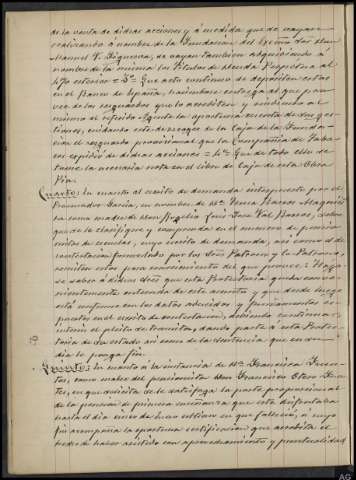 de la venta de dichas acciones y á medida que se vayan
realizando á nombre de la Fundacion del Excmo Sor Don
Manuel V. Figueroa, se vayan tambien adquiriendo á
nombre de la misma los Títulos de deuda Perpetua al
4% exterior = 3º Que acto continuo se depositen estos
en el Banco de España, haciendose entrega al que provee
de los resguardos que lo acrediten y rindiendo al
mismo el referido Agente la oportuna cuenta de sus gestiones,
cuidando este de recoger de la Caja de la Fundacion
el resguardo provisional que la Compañia de
expidió de dichas acciones = 4º Que de todo ello se
tome la necesaria nota en el libro de Caja de esta Obra
Pia.
Cuarto: En cuanto al escrito de demanda interpuesto por el
Procurador Garcia, en nombre de Dª
como madre de Don Rogelio Luis José Val Barros, sobre
que se le clasifique y comprenda en el número de pensionistas
de escuelas, cuyo escrito de demanda, asi como el de
contestacion formulados por los Sres Patrono y la Patrona,
remiten estos para conocimiento del que provee: Hagase
saber á dichos Sres que esta Protectoria queda convenientemente
enterada de este asunto y que desde luego
está conforme con los datos aducidos y fundamentos expuestos
en el escrito de contestacion, debiendo continuar
interin el pleito se tramita, dando parte á esta Protectoria
de su estado asi como de la sentencia que en su
dia le ponga fin.
Quinto: En cuanto á la instancia de Dª Francisca Fuentes,
como madre del pensionista Don Francisco Otero Fuentes,
en que solicita se le satisfaga la parte proporcional
de la pension de primera enseñanza que este disfrutaba
hasta el dia cinco de Enero último en que falleció, á cuyo
fin acompaña la oportuna certificacion que acredita el
hecho de haber asistido con aprovechamiento y puntualidad
AG